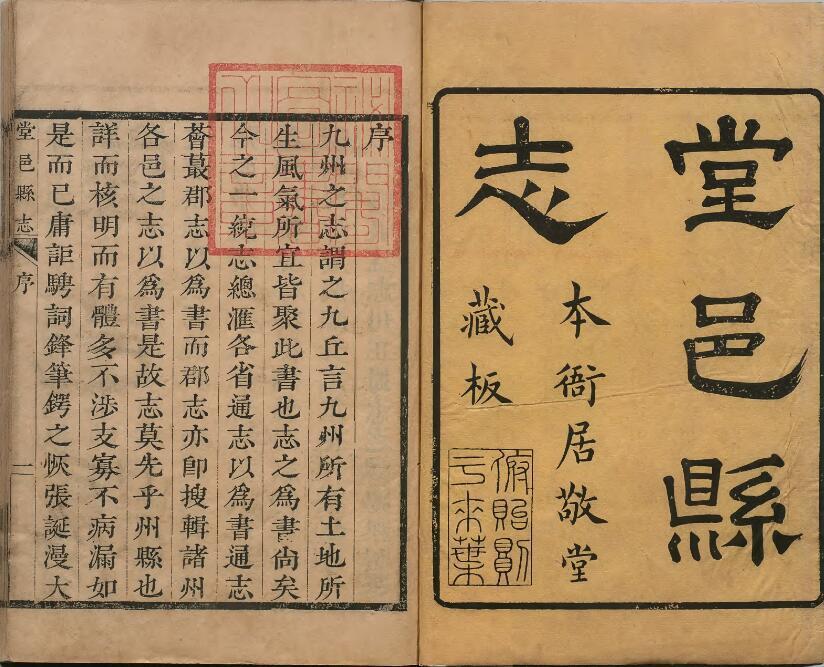 堂邑縣
志
本衙居敬堂
藏板
序
九州之志謂之九丘言九州所有土地所
生風氣所宜皆聚此書也志之爲書尙矣
今之一統志總滙各省通志以爲書通志
薈蕞郡志以爲書而郡志亦卽搜輯諸州
各邑之志以爲書是故志莫先乎州縣也
詳而核明而有體多不涉支寡不病漏如
是而已庸詎騁詞鋒筆鍔之恢張誕漫大
堂邑縣志
序
二